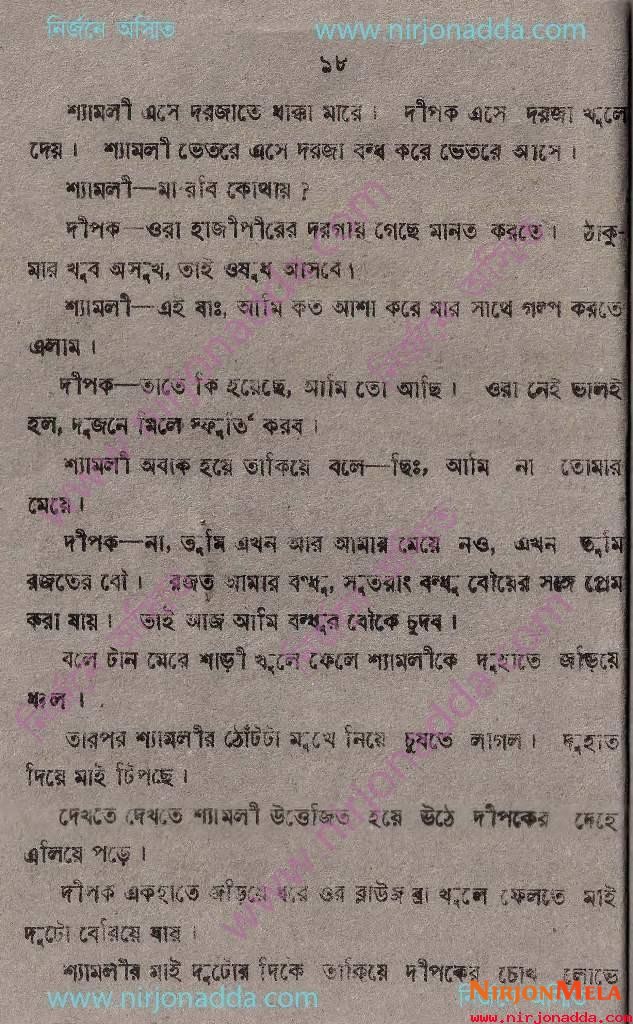 নির্জনে অস্মিত www.nirjonadda.com
১৮
শ্যামলী এসে দরজাতে ধাক্কা মারে। দীপক এসে দরজা খুলে
দেয়। শ্যামলী ভেতরে এসে দরজা বন্ধ করে ভেতরে আসে।
শ্যামলী—মা রবি কোথায়?
দীপক—ওরা হাজীপীরের দরগায় গেছে মানত করতে। ঠাকু-
মার খুব অসুখ, তাই ওষুধ আসবে।
শ্যামলী—এই যাঃ, আমি কত আশা করে মার সাথে গল্প করতে
এলাম।
দীপক—তাতে কি হয়েছে, আমি তো আছি। ওরা নেই ভালই
হল, দুজনে মিলে স্ফূর্তি করব।
শ্যামলী অবাক হয়ে তাকিয়ে বলে—ছিঃ, আমি না তোমার
মেয়ে।
দীপক—না, তুমি এখন আর আমার মেয়ে নও, এখন তুমি
রজতের বৌ। রজত আমার বন্ধু, সুতরাং বন্ধু বৌয়ের সঙ্গে প্রেম
করা যায়। তাই আজ আমি বন্ধুর বৌকে চুদব।
বলে টান মেরে শাড়ী খুলে ফেলে শ্যামলীকে দুহাতে জড়িয়ে
ধরল।
তারপর শ্যামলীর ঠোঁটটা মুখে নিয়ে চুষতে লাগল। দুহাত
দিয়ে মাই টিপছে।
দেখতে দেখতে শ্যামলী উত্তেজিত হয়ে উঠে দীপকের দেহে
এলিয়ে পড়ে।
দীপক একহাতে জড়িয়ে ধরে ওর ব্লাউজ ব্রা খুলে ফেলতে মাই
দুটো বেরিয়ে যায়।
শ্যামলীর মাই দুটোর দিকে তাকিয়ে দীপকের চোখ লোভে
www.nirjonadda.com NIRJONMELA
www.nirjonadda.com